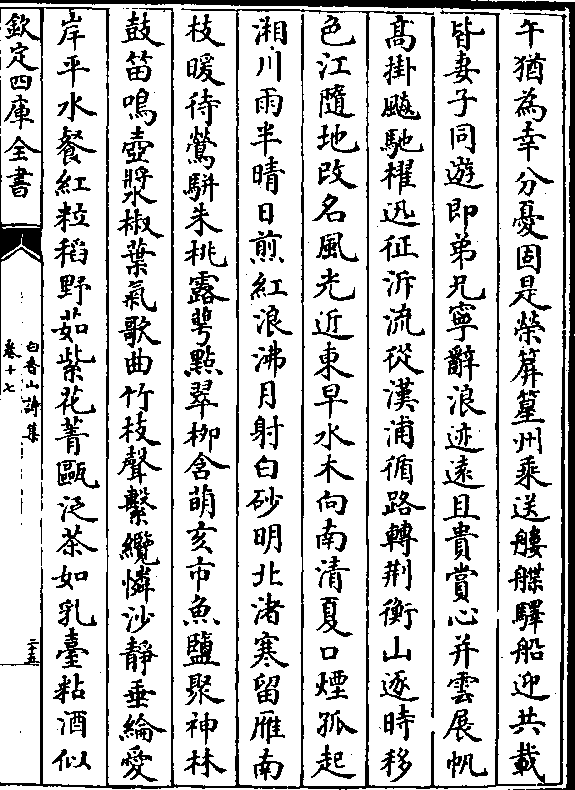 午猶為幸分憂固是榮簈篁州乘送艛艓驛船迎共載
皆妻子同遊即弟兄寧辭浪迹遠且貴賞心并雲展帆
高掛飈馳櫂迅征泝流從漢浦循路轉荆衡山逐時移
色江隨地改名風光近東早水木向南清夏口煙孤起
湘川雨半晴日煎紅浪沸月射白砂明北渚寒留雁南
枝暖待鶯駢朱桃露萼點翠栁含萌亥市魚鹽聚神林
鼓笛鳴壺漿椒葉氣歌曲竹枝聲繫纜憐沙靜垂綸愛
岸平水餐紅粒稻野茹紫花菁甌泛茶如乳臺粘酒似
欽定四庫全書
白香山詩集
卷十七
二十五